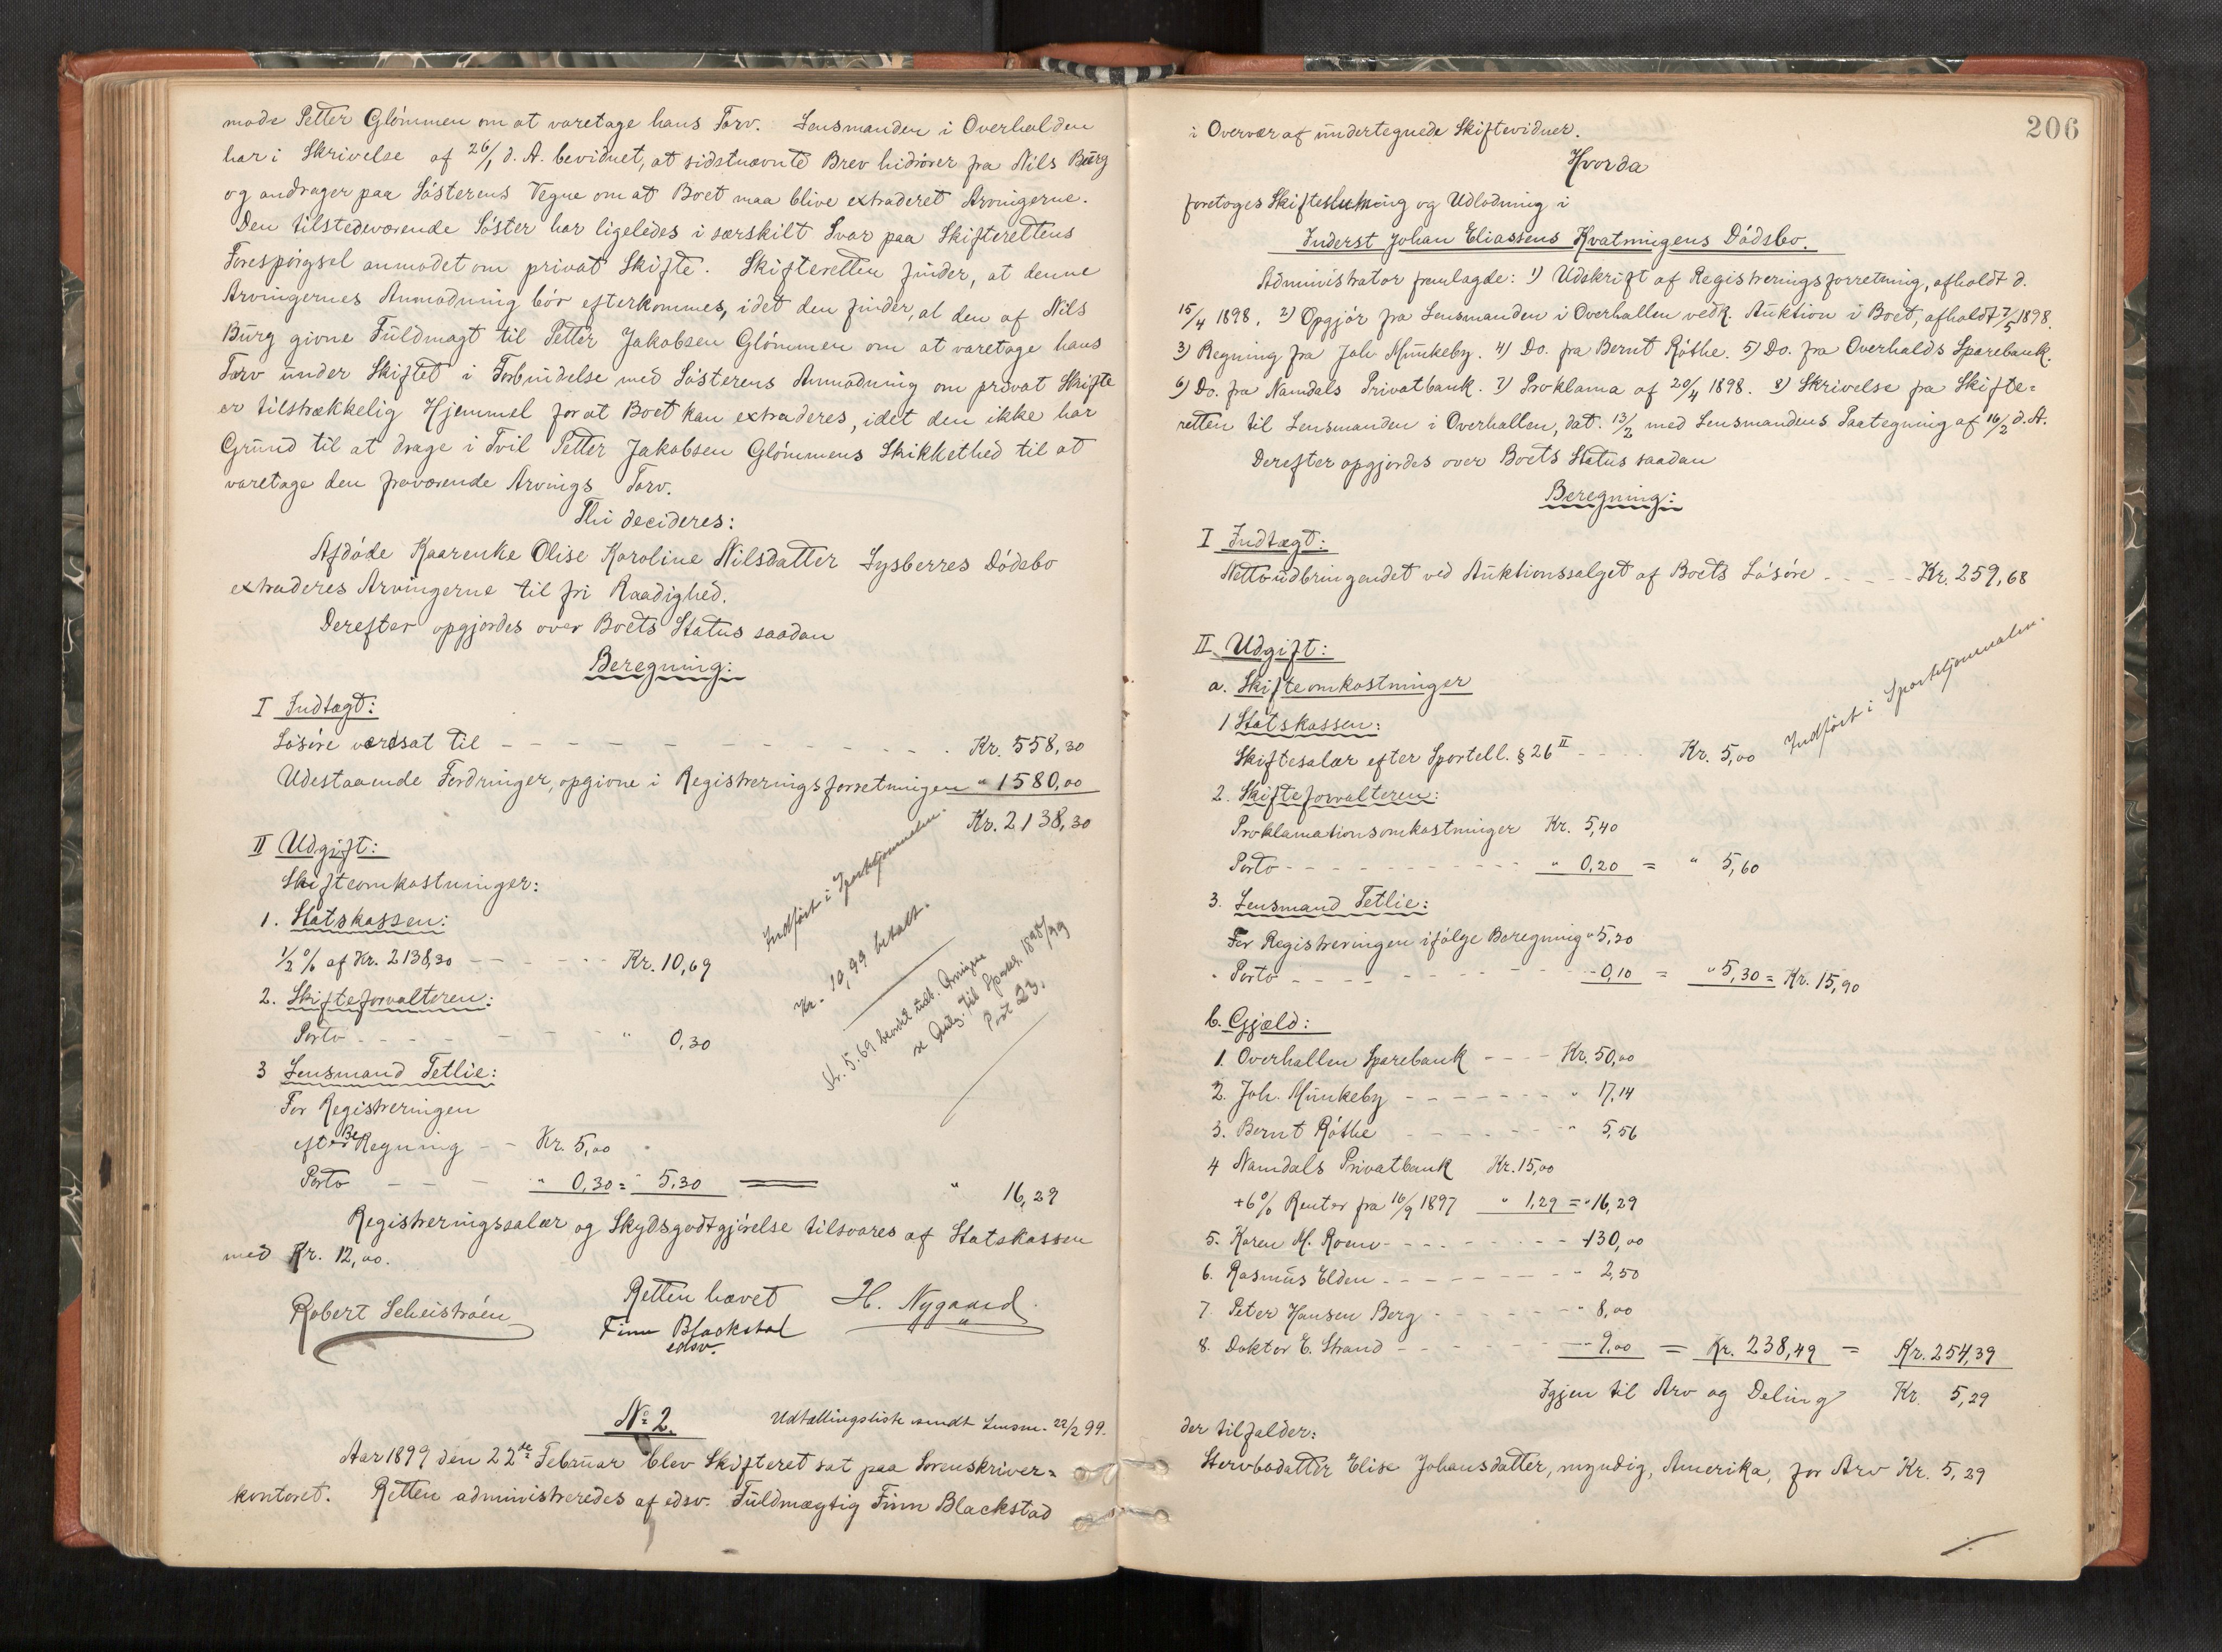 mode Petter Glömmen om at varetage hans Tarv. Lensmanden i Overhalden
har i Skrivelse af 26/1 d. A. bevidnet, at sidstnævnte Brev hidrörer fra Nils Bürg
og andrager paa Søsterens Vegne om at Boet maa blive extraderet Arvingerne.
Den tilstedeværende Söster har ligeledes i særskilt Svar paa Skifterettens
Forespörgsel anmodet om privat Skifte. Skifteretten finder, at denne
Arvingernes Anmodning bör efterkommes, idet den finder, at den af Nils
Bürg givne Füldmagt til Petter Jakobsen Glömmen om at varetage hans
Tarv ünder Skiftet i Forbindelse med Sösterens Anmodning om privat Skifte
er tilstrækkelig Hjemmel for at Boet kan extraderes, idet den ikke har
Gründ til at drage i Tvil Petter Jakobsen Glömmens Skikkethed til at
varetage den fraværende Arvings Tarv.
Thi decideres:
Afdöde Kaarenke Olise Karoline Nilsdatter Lysberres Dödsbo
extraderes Arvingerne til fri Raadighed.
Derefter opgjordes over Boets Status saadan
Beregning:
I Indtægt:
Lösöre værdsat til - - - - - - - - - - Kr. 558,30
Udestaaende Fordringer, opgivne i Registreringsforretningen " 1580,00
Kr. 2138,30
II Udgift:
Skifteomkostninger:
1. Statskassen:
1/2 % af Kr. 2138,30 - - - - - Kr. 10,69
2. Skifteforvalteren:
Porto - - - - - - - " 0,30
3 Lensmand Tetlie:
For Registreringen
efter BeRegning - - Kr. 5,00
Porto - - - " 0,30 = " 5.30 " 16,29
Indført i Sporteljournalen.
Kr. 10,99 betalt.
Kr. 5.69
1898/99
Post 23.
Registreringssalær og Skydsgodtgjörelse tilsvares af Statskassen
med Kr. 12,00.
Retten hævet
Robert Scheiströen
Finn Blackstad
edsv.
H. Nygaard
No 2. Udtællingsliste sendt Lensm. 22/2 99.
Aar 1899 den 22de Februar blev Skifteret sat paa Sorenskriver=
kontoret. Retten administreredes af edsv. Füldmægtig Finn Blackstad
206
i Overvær af ündertegnede Skiftevidner.
Hvorda
foretoges Skifteslutning og Udlodning i
Inderst Johan Eliassens Kvatningens Dödsbo.
Administrator fremlagde: 1) Udskrift af Registreringsforretning, afholdt d.
15/4 1898. 2) Opgjör fra Lensmanden i Overhallen vedk. Auktion i Boet, afholdt 7/5 1898.
3) Regning fra Joh Münkeby. 4) Do. fra Bernt Röthe. 5) Do. fra Overhalds Sparebank.
6) Do. fra Namdals Privatbank. 7) Proklama af 20/4 1898. 8) Skrivelse fra Skifte=
retten til Lensmanden i Overhallen, dat. 13/2 med Lensmandens Paategning af 16/2 d. A.
Derefter opgjordes over Boets Status saadan
Beregning:
I Indtægt:
Nettoüdbringendet ved Auktionssalget af Boets Lösöre - - - - - Kr. 259,68
II Udgift:
a. Skifteomkostninger
1 Statskassen:
Skiftesalær efter Sportell. § 26 II - - - - Kr. 5,00
Indført i Sporteljournalen.
2. Skifteforvalteren:
Proklamationsomkostninger Kr. 5,40
Porto - - - - - - - " 0,20 = " 5,60
3. Lensmand Tetlie:
For Registreringen ifölge Beregning " 5,20
" Porto - - - - - - - - 0,10 = " 5,30 = Kr. 15,90
b. Gjæld:
1. Overhallen Sparebank - - - - Kr. 50,00
2. Joh. Münkeby - - - - - - - " 17,14
3. Bernt Röthe - - - - - - " 5,56
4 Namdals Privatbank Kr. 15,00
+ 6% Renter fra 16/9 1897 " 1,29 = " 16,29
5. Karen M. Roem - - - - - - - - 130,00
6. Rasmüs Elden - - - - - - - - " 2,50
7. Peter Hansen Berg - - - - - - " 8,00
8. Doktor E. Strand - - - - - - 9,00 = Kr. 238,49 = Kr. 254,39
Igjen til Arv og Deling Kr. 5,29
der tilfalder:
Stervbodatter Elise Johansdatter, myndig, Amerika, for Arv Kr. 5,29